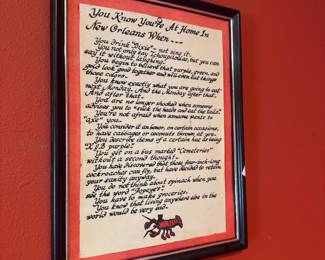 You Know You're At Home In
New Orleans When---
You drink "Dixie"- not sing it.
You not only say Tchoupitoulas, but you can
say it without laughing.
You begin to believe that purple, green, and
gold look good together and will even eat things
those colors.
You know exactly what you are going to eat
next Monday. And the Monday after that.
And after that-
You are no longer shocked when someone
advises you to "suck the heads and eat the tails."
You're not afraid when someone wants to
"axe" you-
You consider it an honor, on certain occasions,
to have cabbages or coconuts thrown at you.
You describe items of a certain hue as being
"K&B purple."
You get on a bus marked "Cemeteries"
without a second thought.
You have discovered that those four-inch-long
cockroaches can fly, but have decided to retain
your sanity anyway.
You do not think about spinach when you
see the word "Popeye's."
You have to make groceries.
You know that living anywhere else in the
world would be very sad.